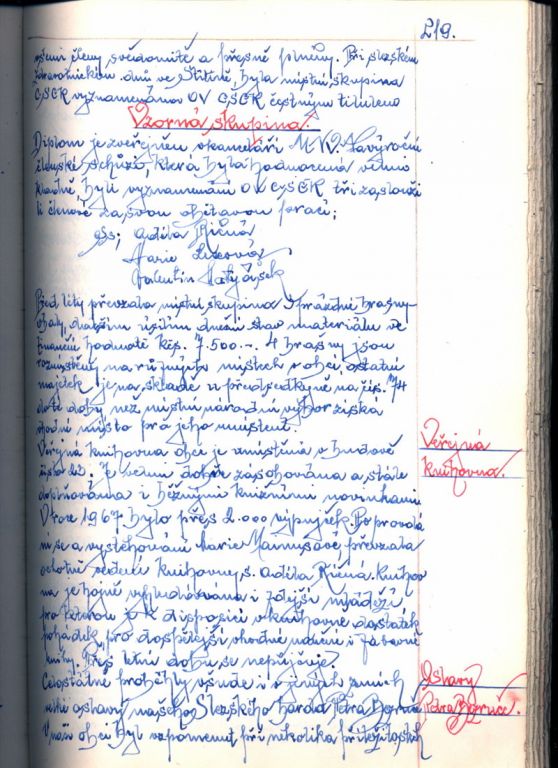 219.
všemi členy svědomitě a přesně plněny. Při slezském
zdravotnickém dnů ve Štítině, byla místní skupina
ČSČK vyznamenána OV ČSČK čestným titulem
Vzorná skupina.
Diplom je zveřejněn v kanceláři M.N.V. Na výroční
členské schůzi, která byla hodnocená velmi
kladně byli vyznamenáni OV ČSČK tři zaslouži
lí členové za svou obětavou práci;
Adéla Říčná
Marie
Valentin Matyášek
Před léty převzala místní skupina 3 prázdné brašny
dnešní stav materiálu ve
finanční hodnotě Kčs. 7.500.-. 4 brašny jsou
rozmístěny na různých místech v obci, ostatní
majetek je na skladě u předsedkyně na čís. 74
do té doby než místní národní výbor získá
vhodné místo pro jeho umístění.
Veřejná knihovna obce je umístěna v budově
Je velmi dobře zásobována a stále
doplňována i běžnými knižními novinkami
V roce 1967. bylo přes 2.000 výpujček. Po provdá
ní se a vystěhování Marie Mannusové převzala
ochotně vedení knihovny s. Adéla Říčná. Knihov
na je hojně vyhledávána i zdejší mládeží,
pro kterou je k dispozici v knihovně dostatek
pohádek, pro dospělejší vhodné naučné i zábavné
knihy. Přes letní dobu se nepůjčuje.
Celostátně proběhly všude i v jiných zemích
velké oslavy našeho Slezského barda Petra Bezruče
V naší obci byl vzpomenut při několika příležitostech
Veřejná
knihovna.
Oslavy
Petra Bezruče.